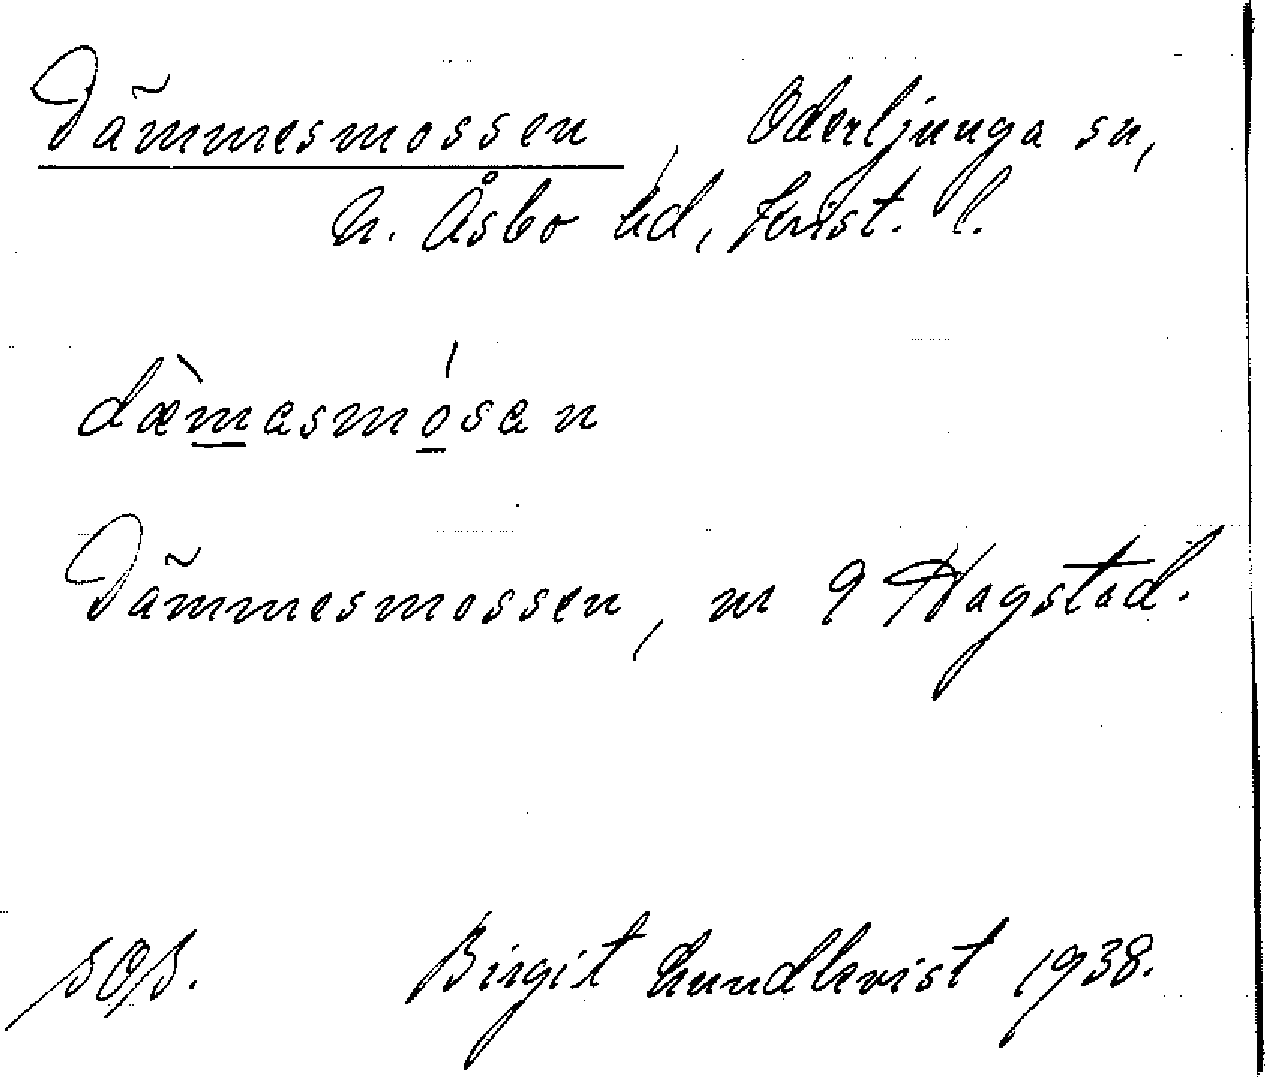 Dämmesmossen, Oderljunga sn,
N. Åsbo hd, Krist. l.
dæ̀masmósan
Dämmesmossen, nr 9 Hagstad.
Birgit Lundkvist 1938.